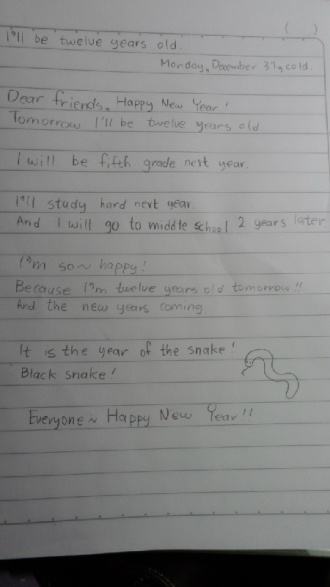 (          )
I'll be twelve years old.
Monday, December 31, cold.
Dear friends. Happy New Year!
Tomorrow I'll be twelve years old
I will be fifth grade next year.
I'll study hard next year.
And I will go to middle school 2 years later
I'm so~ happy!
Because I'm twelve years old tomorrow!!
And the new years coming.
It is the year of the snake!
Black snake!
Everyone~ Happy New Year!!